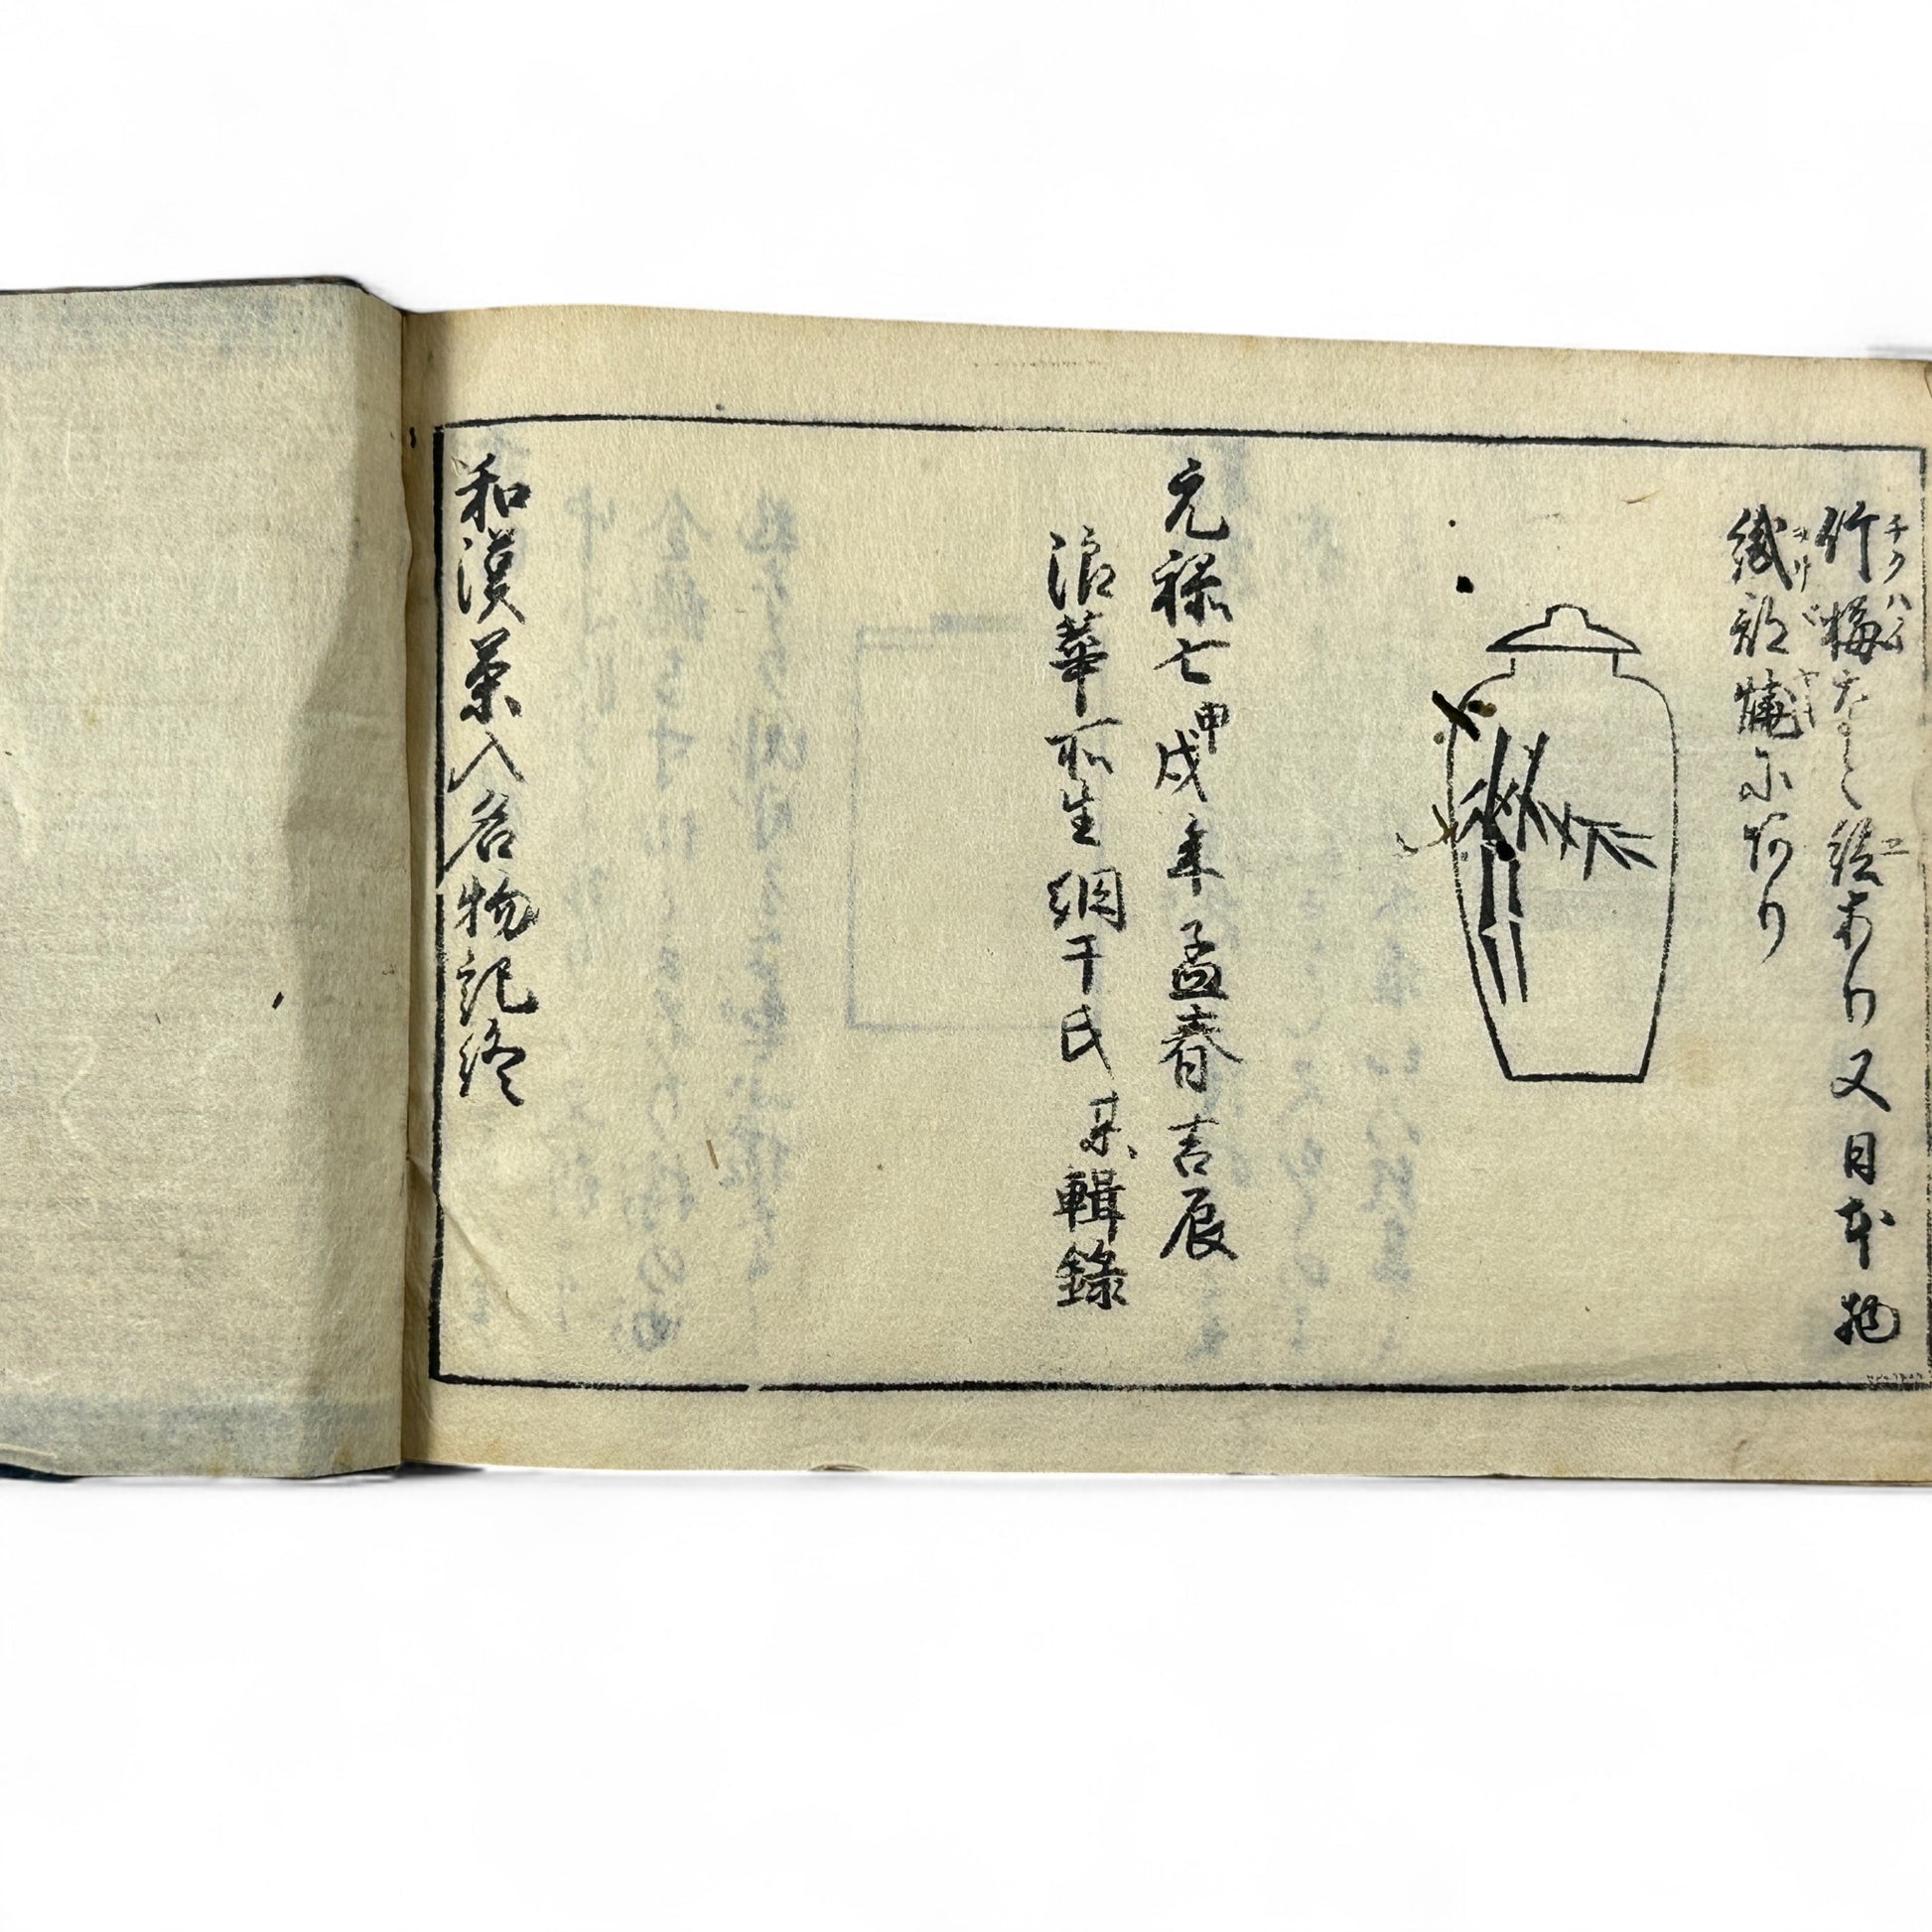 竹梅なと絵あり又日本物
織部焼にあり
元禄七甲戌年孟春吉辰
浪華所生綱干氏某輯録
和漢茶入名物記終